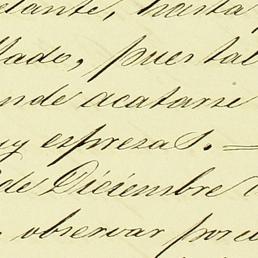 elante, hasta
llado, pues tal
nde acatarse
uy espresas. —
de Diciembre
observar por